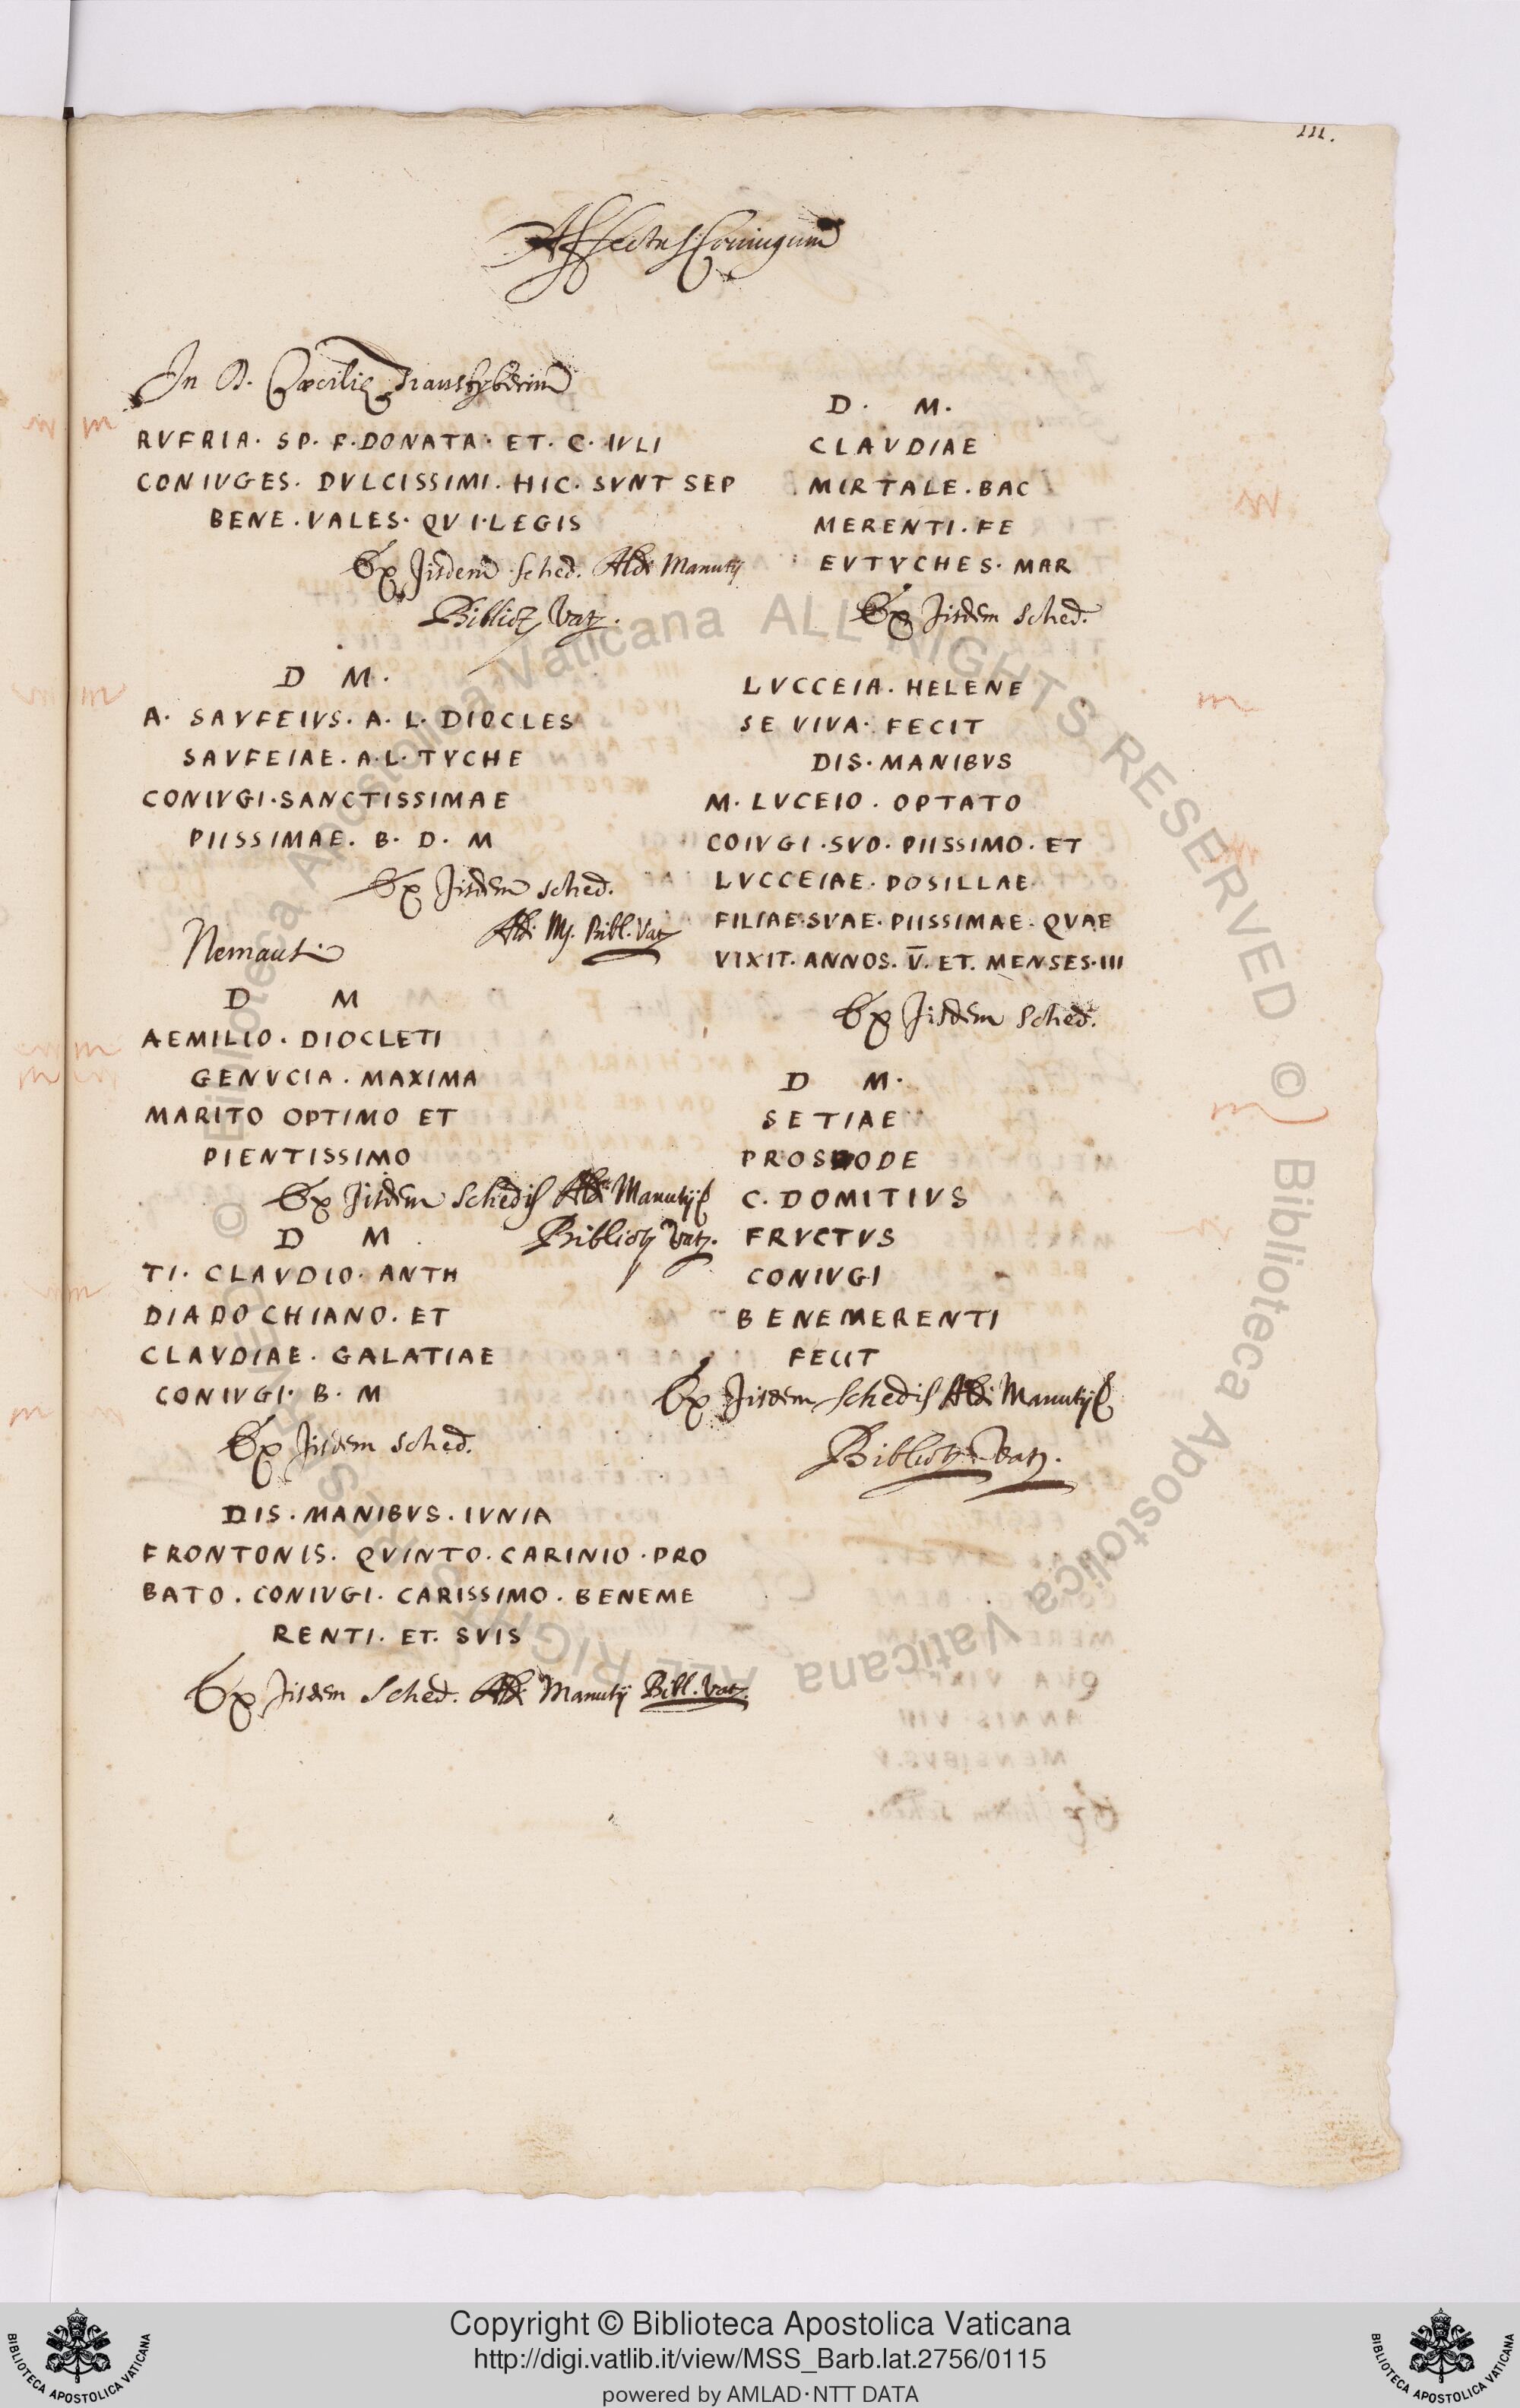 111.
Affectus Coniugum
In D. Cæcilię Transtyberim
RVFRIA. SP. F. DONATA. ET. C. IVLI
CONIVGES. DVLCISSIMI. HIC. SVNT SEP
BENE. VALES. QVI. LEGIS
Ex Jisdem Sched. Aldi Manutij
Bibliot. Vat.
D M.
A. SAVFEIVS. A. L. DIOCLES
SAVFEIAE. A. L. TYCHE
CONIVGI. SANCTISSIMAE
PIISSIMAE. B. D. M
Ex Jisdem sched.
Aldi M. Bibl. Vat.
Nemausi
D M
AEMILIO. DIOCLETI
GENVCIA. MAXIMA
MARITO OPTIMO ET
PIENTISSIMO
Ex Jisdem Schedis Aldi Manutij
Bibliot. Vat.
D M
TI. CLAVDIO. ANTH
DIADOCHIANO. ET
CLAVDIAE. GALATIAE
CONIVGI. B. M
Ex Jisdem sched.
DIS. MANIBVS. IVNIA
FRONTONIS. QVINTO. CARINIO. PRO
BATO. CONIVGI. CARISSIMO. BENEME
RENTI. ET. SVIS
Ex Jisdem Sched. Aldi Manutij Bibl. Vat.
D. M.
CLAVDIAE
MIRTALE. BAC
MERENTI. FE
EVTYCHES. MAR
Ex Jisdem Sched.
LVCCEIA. HELENE
SE VIVA. FECIT
DIS. MANIBVS
M. LVCEIO. OPTATO
COIVGI. SVO. PIISSIMO. ET
LVCCEIAE. POSILLAE
FILIAE. SVAE. PIISSIMAE. QVAE
VIXIT. ANNOS. V̅. ET. MENSES. III
Ex Jisdem Sched.
D M.
SETIAE
C. DOMITIVS
FRVCTVS
CONIVGI
BENEMERENTI
FECIT
Ex Jisdem Schedis Aldi Manutij
Bibliot. Vat.
Copyright © Biblioteca Apostolica Vaticana
http://digi.vatlib.it/view/MSS_Barb.lat.2756/0115
powered by AMLAD·NTT DATA
BIBLIOTECA APOSTOLICA VATICANA
BIBLIOTECA APOSTOLICA VATICANA